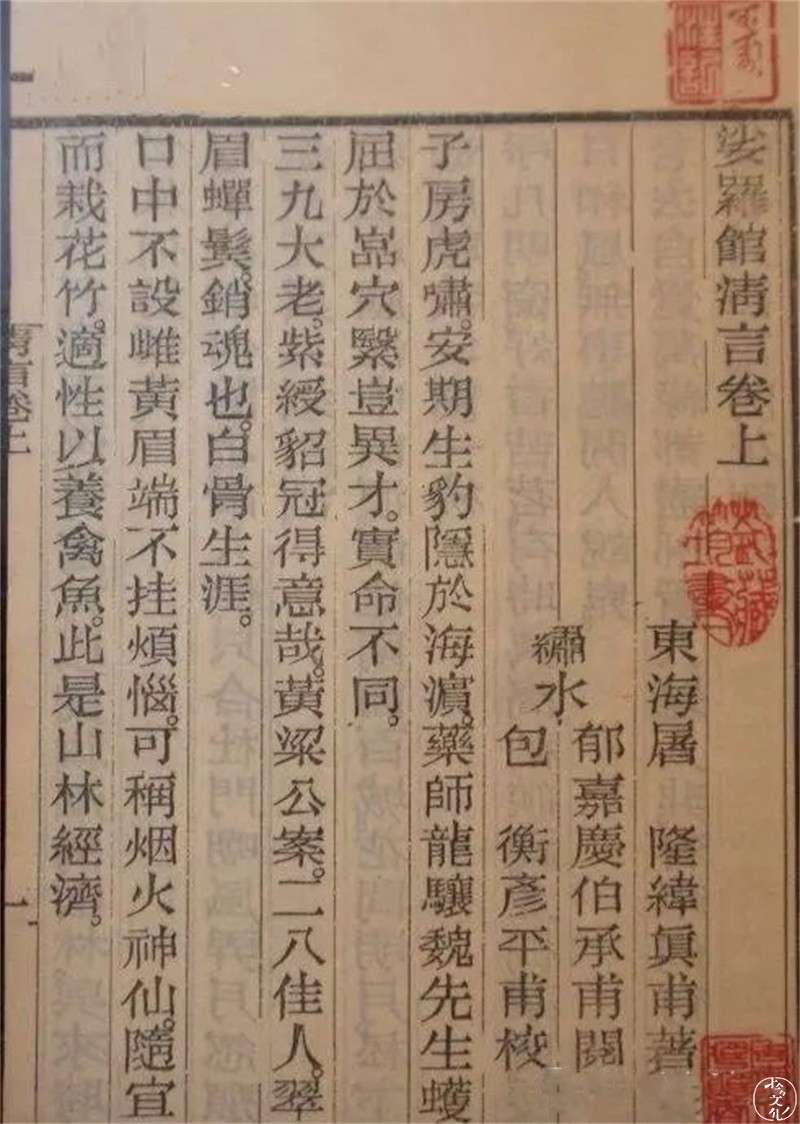 娑羅館清言卷上
東海屠　隆緯眞甫著
郁嘉慶伯承甫閱
繡水
包　衡彥平甫校
子房虎嘯。安期生豹隱於海濵。藥師龍驤魏先生蠖
屈於嵓穴繄豈異才。實命不同。
三九大老。紫綬貂冠得意哉。黃粱公案。二八佳人。翠
眉蟬鬂。銷魂也。白骨生涯。
口中不設雌黃眉端不挂煩惱。可稱烟火神仙。隨宜
而栽花竹。適性以養禽魚。此是山林經濟。
清言卷上
一